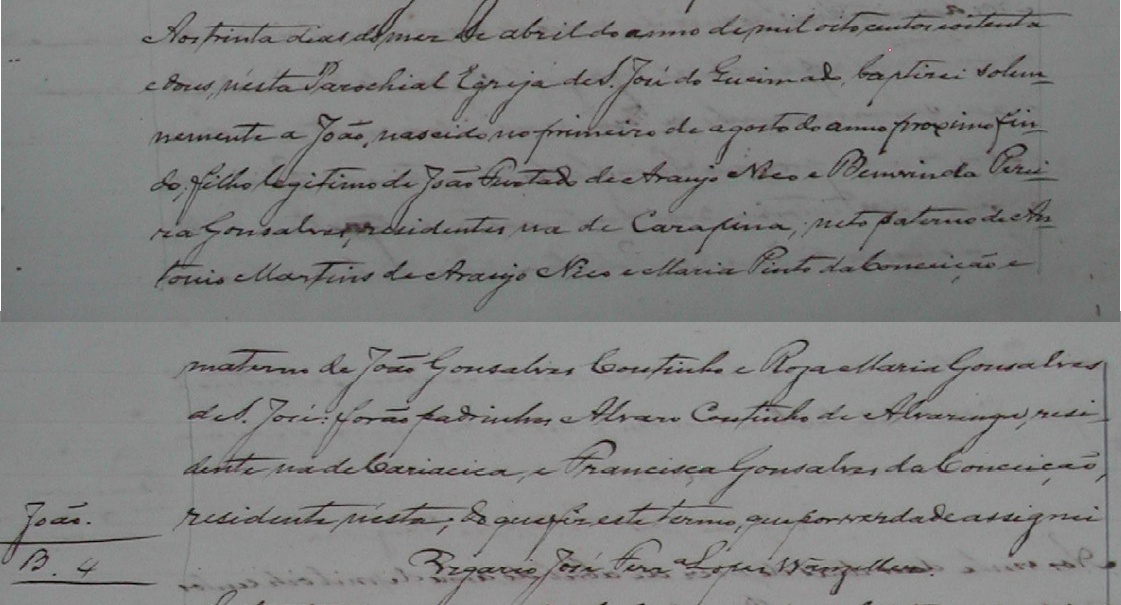 Aos trinta dias do mez de abril do anno de mil oito centos e oitenta
e dous, n'esta Parochial Egreja de S. José do Queimado, baptizei solem-
nemente a João, nascido no primeiro de agosto do anno proximo fin-
do, filho legitimo de João Furtado de Araujo Nico e Bemvinda Perei-
ra Gonsalves, residentes na de Carapina; neto paterno de An-
tonio Martins de Araujo Nico e Maria Pinto da Conceição e
materno de João Gonsalves Coutinho e Roza Maria Gonsalves
de S. José: forão padrinhos Alvaro Coutinho de Alvarenga, resi-
dente na de Cariacica, e Francisca Gonsalves da Conceição,
João.
residente n'esta; do que fiz este termo, que por verdade assignei
B. 4
Vigario José Ferr.ª Lopes